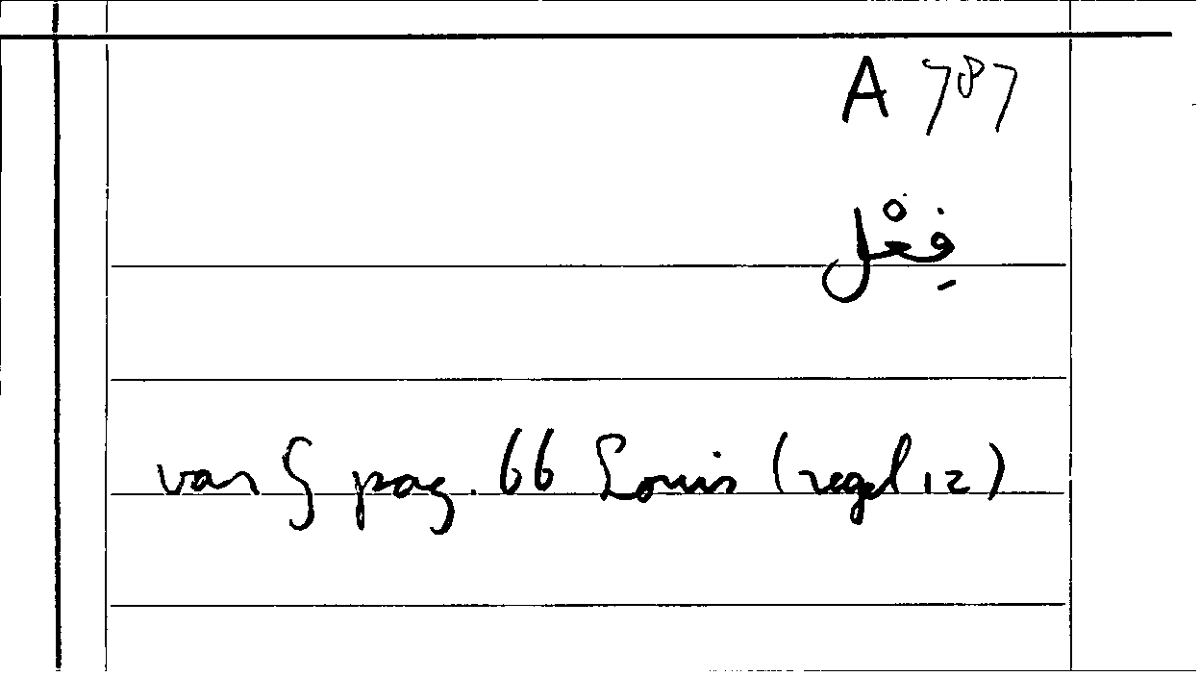 A 787
فِعْل
van § pag. 66 Louis (regel 12)